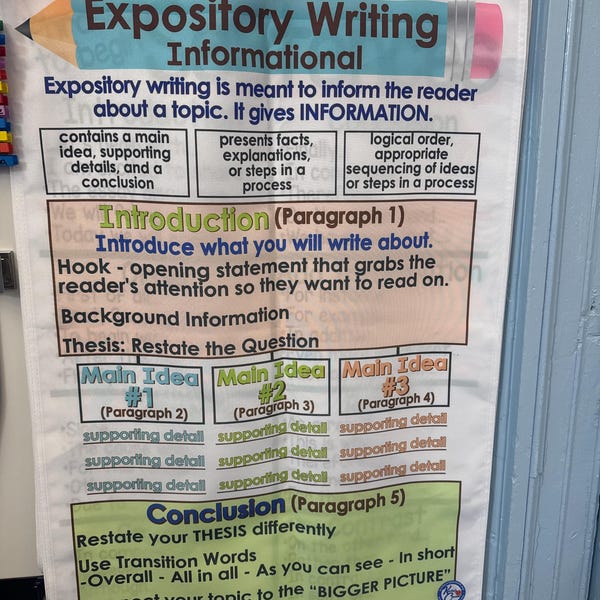 Expository Writing
Informational
Expository writing is meant to inform the reader
about a topic. It gives INFORMATION.
contains a main
idea, supporting
details, and a
conclusion
presents facts,
explanations,
or steps in a
process
logical order,
appropriate
sequencing of ideas
or steps in a process
Introduction (Paragraph 1)
Introduce what you will write about.
Hook - opening statement that grabs the
reader's attention so they want to read on.
Background Information
Thesis: Restate the Question
Main Idea
#1
(Paragraph 2)
supporting detail
supporting detail
supporting detail
Main Idea
#2
(Paragraph 3)
supporting detail
supporting detail
supporting detail
Main Idea
#3
(Paragraph 4)
supporting detail
supporting detail
supporting detail
Conclusion (Paragraph 5)
Restate your THESIS differently
Use Transition Words
-Overall - All in all - As you can see - In short
your topic to the "BIGGER PICTURE"